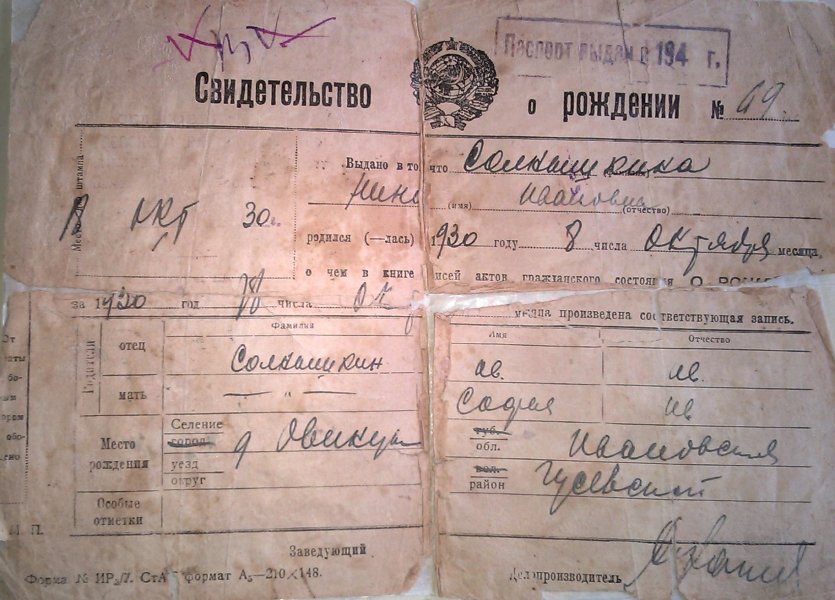 Паспорт выдан в 194 г.
Свидетельство о рождении № 69.
Место для штампа
Выдано в то что Солкашикина
Нина Ивановна
(имя) (отчество)
окт 30
родился (—лась) 1930 году 8 числа октября месяца,
о чем в книге записей актов гражданского состояния о рожд
за 1930 год числа
месяца произведена соответствующая запись.
Фамилия Имя Отчество
Родители
отец Солкашикин ив. ив.
мать — " — София ив
Место рождения
Селение
город
уезд
округ
д
губ.
обл. Ивановская
вол.
район Гусевской
Особые отметки
М П.
Заведующий
Делопроизводитель
Форма № ИР₂/7. СтА формат А₅—210×148.